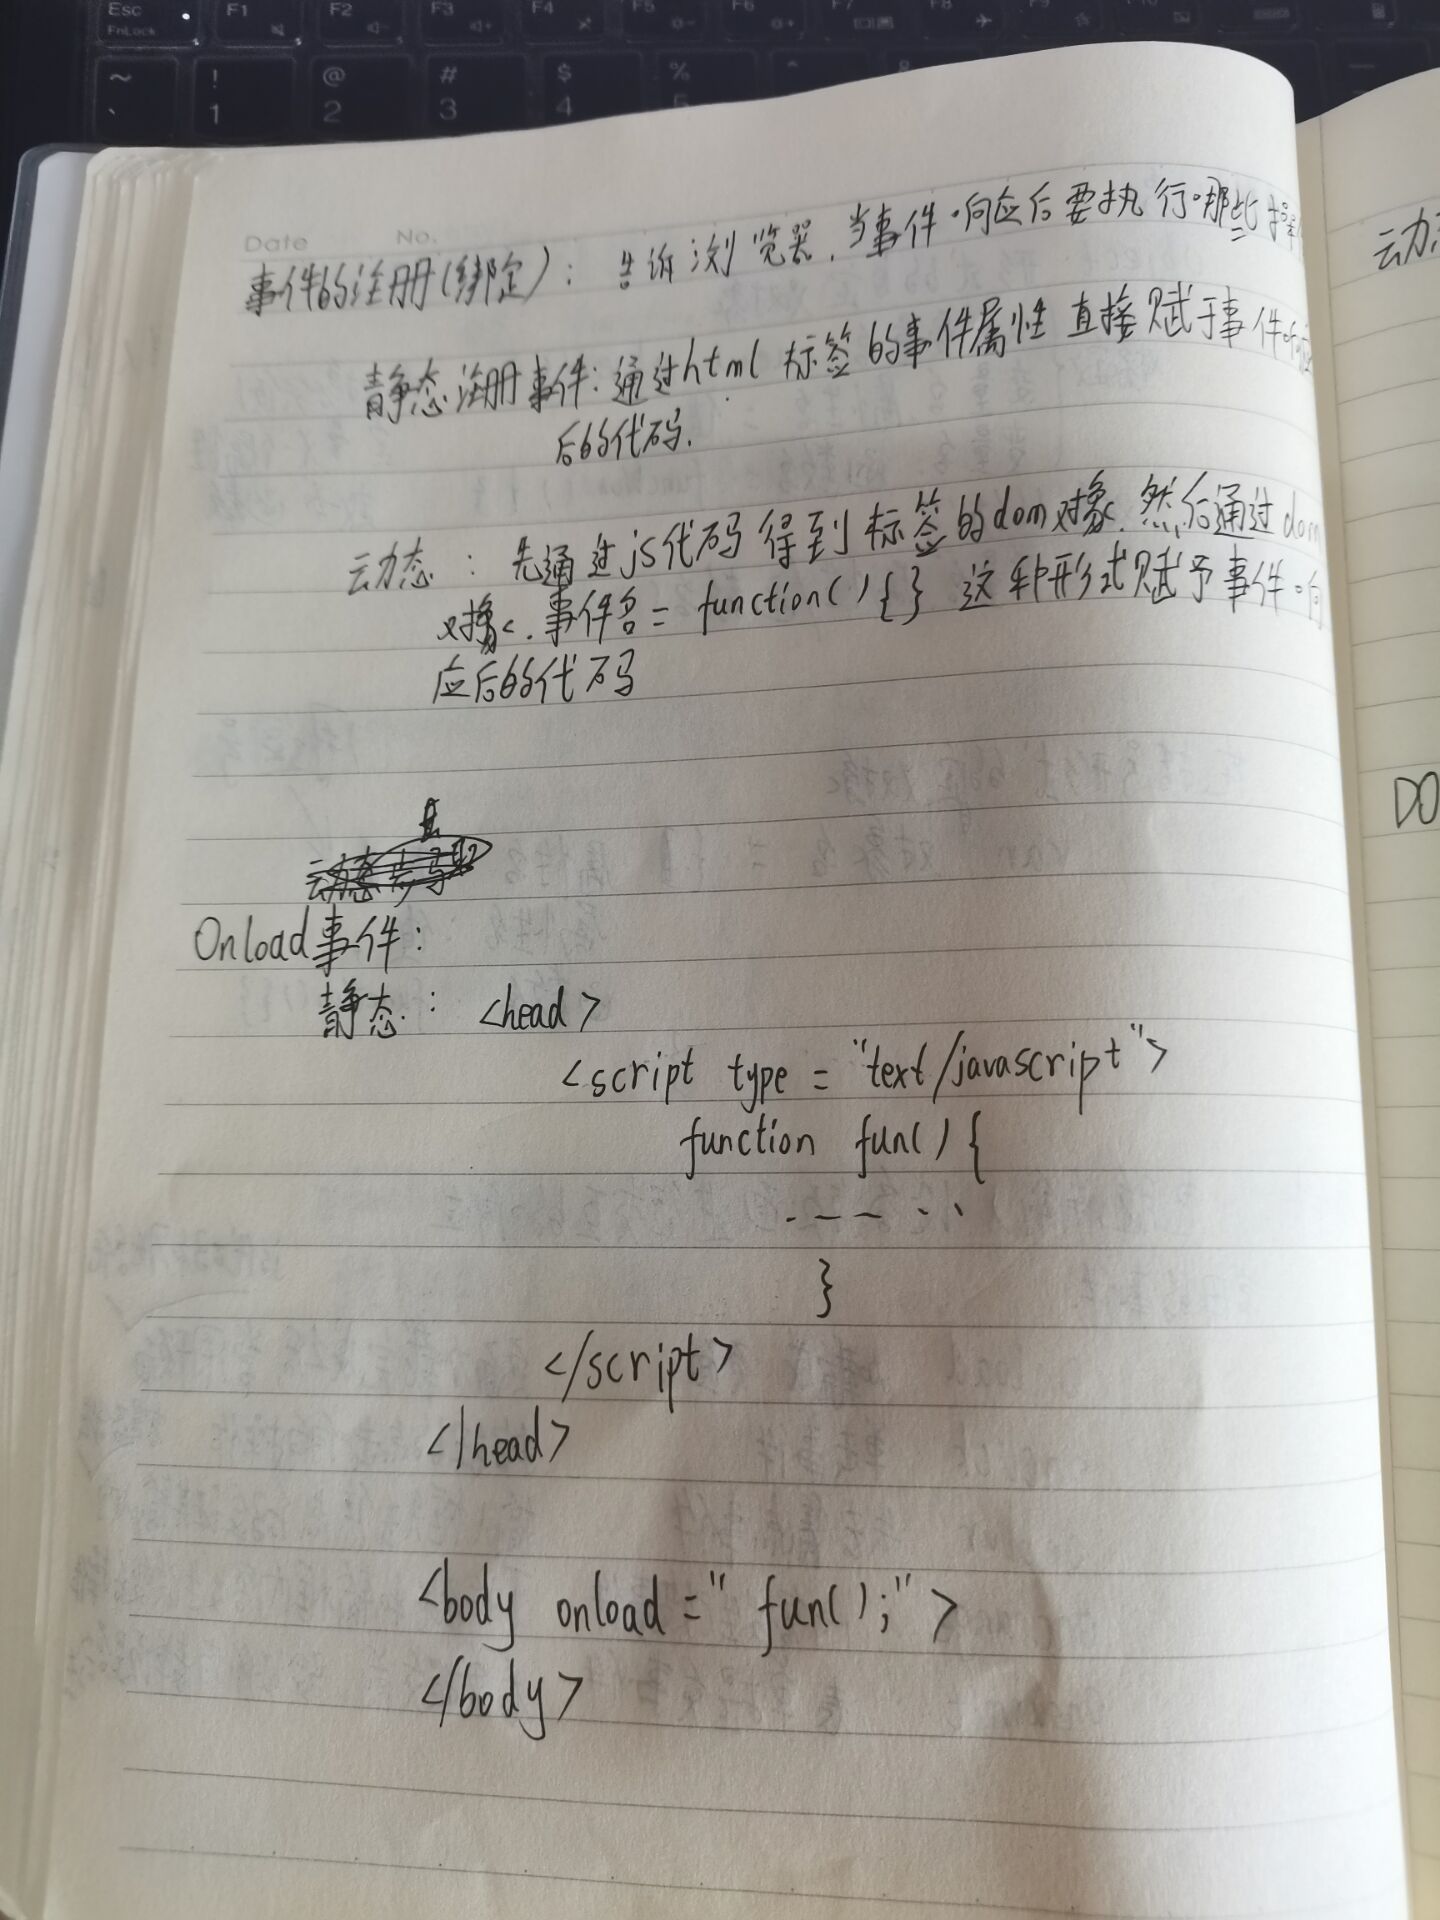 Esc F1 F2 F3 F4 F5 F6 F7 F8
FnLock
~ ! @ # $ %
` 1 2 3 4
Date No.
事件的注册(绑定)： 告诉浏览器，当事件响应后要执行哪些操
静态注册事件：通过html 标签的事件属性 直接赋于事件响应
后的代码.
动态 ： 先通过js代码得到标签的dom对象，然后通过dom
对象.事件名= function(){} 这种形式赋予事件响
应后的代码
Onload事件：
静态： <head>
<script type = "text/javascript">
function fun(){
}
</script>
</head>
<body onload=" fun();">
</body>
动态
DO